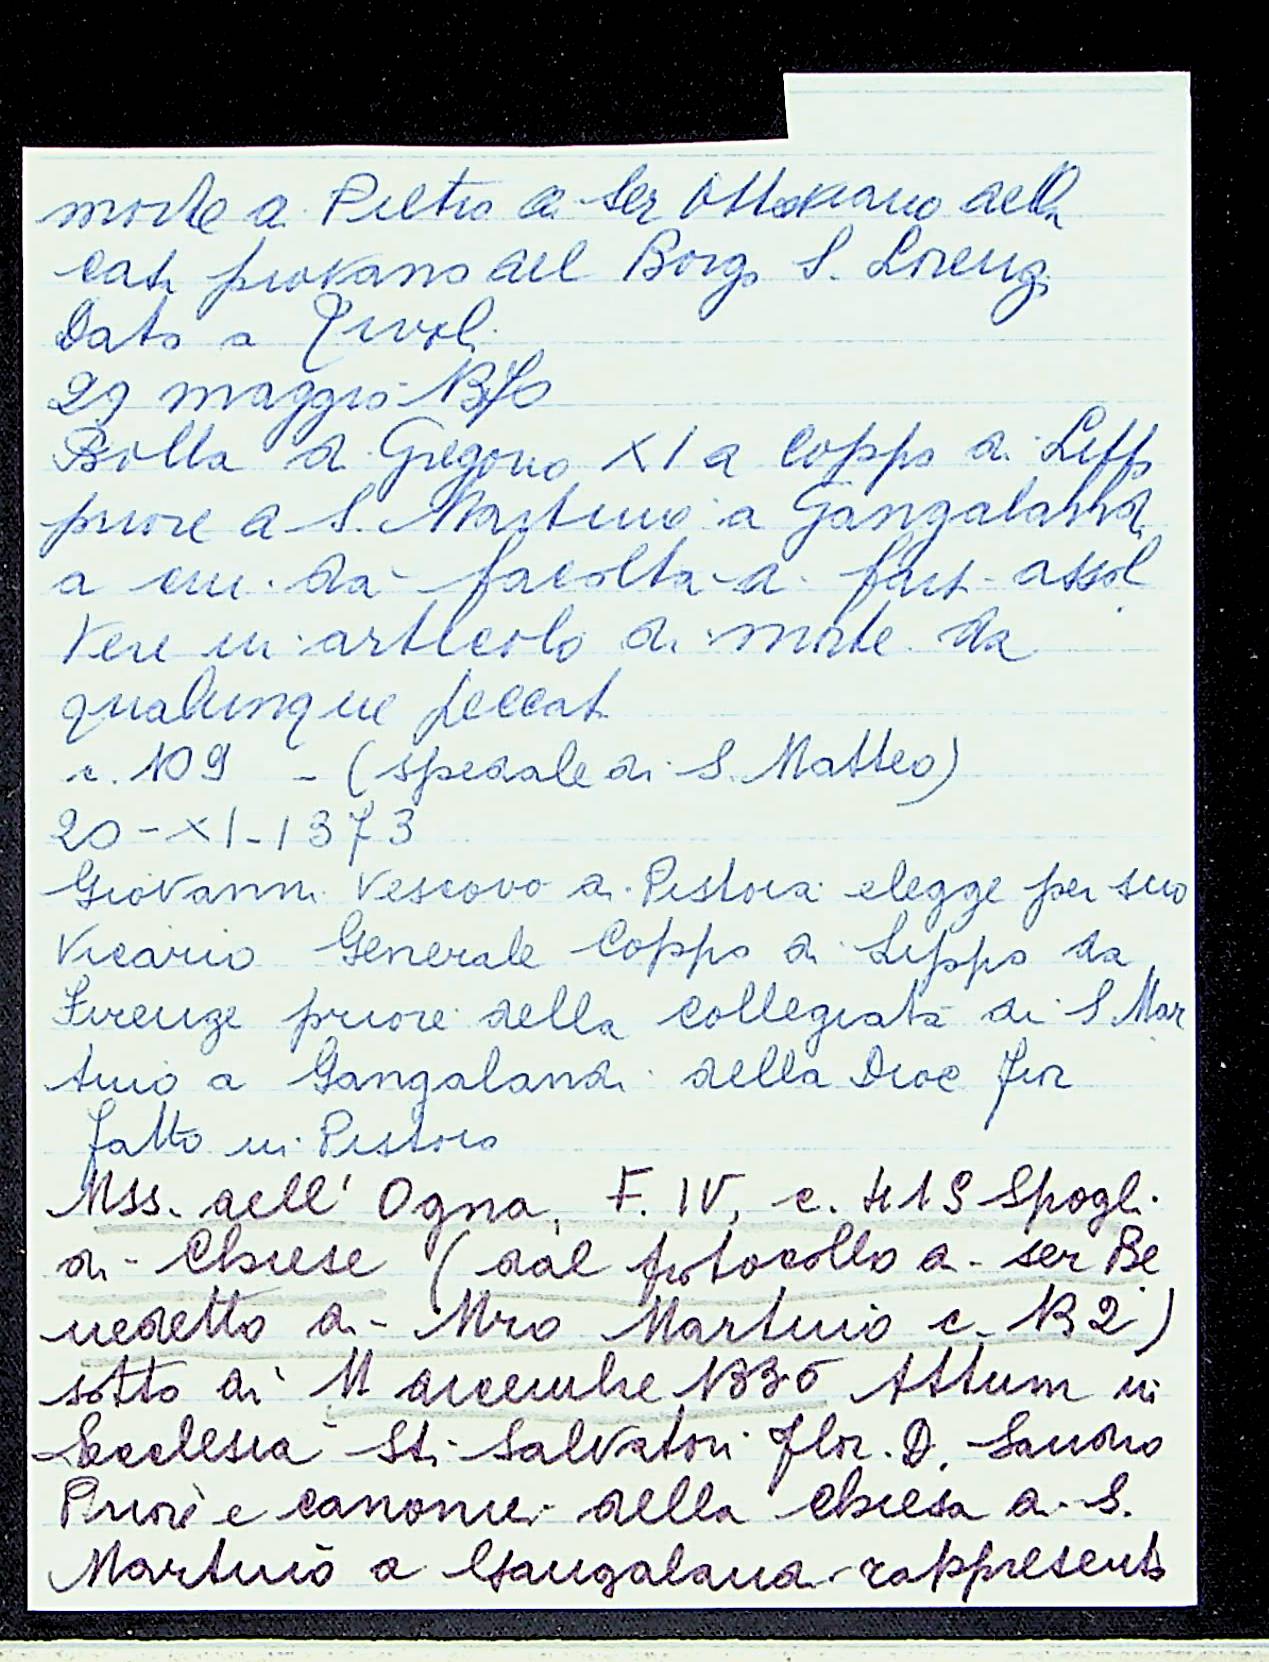 morte a Pietro di Ser Ottaviano della
cat piovano del Borgo S. Lorenzo
Dato a Tivoli
29 maggio 1370
Bolla di Gregorio XI a Coppo di Lippo
priore di S. Martino a Gangalandi
a cui dà facoltà di farsi assol
vere in articolo di morte da
qualunque peccato
c. 109 - (spedale di S. Matteo)
20-XI-1373
Giovanni Vescovo di Pistoia elegge per suo
Vicario Generale Coppo di Lippo da
Firenze priore della collegiata di S Mar
tino a Gangalandi della Dioc fior
fatto in Pistoia
Mss. dell' Ogna, F. IV, c. 419 Spogli
di Chiese (dal protocollo di ser Be
nedetto di Mro Martino c. 132)
sotto di 11 dicembre 1330 Attum in
Ecclesia Sti Salvatori flor. D. Sandro
Priore e canonici della chiesa di S.
Martino a Gangalandi rappresent